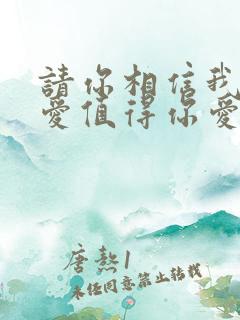 請你相信我
愛值得你愛
唐熱1
未經同意禁止轉載